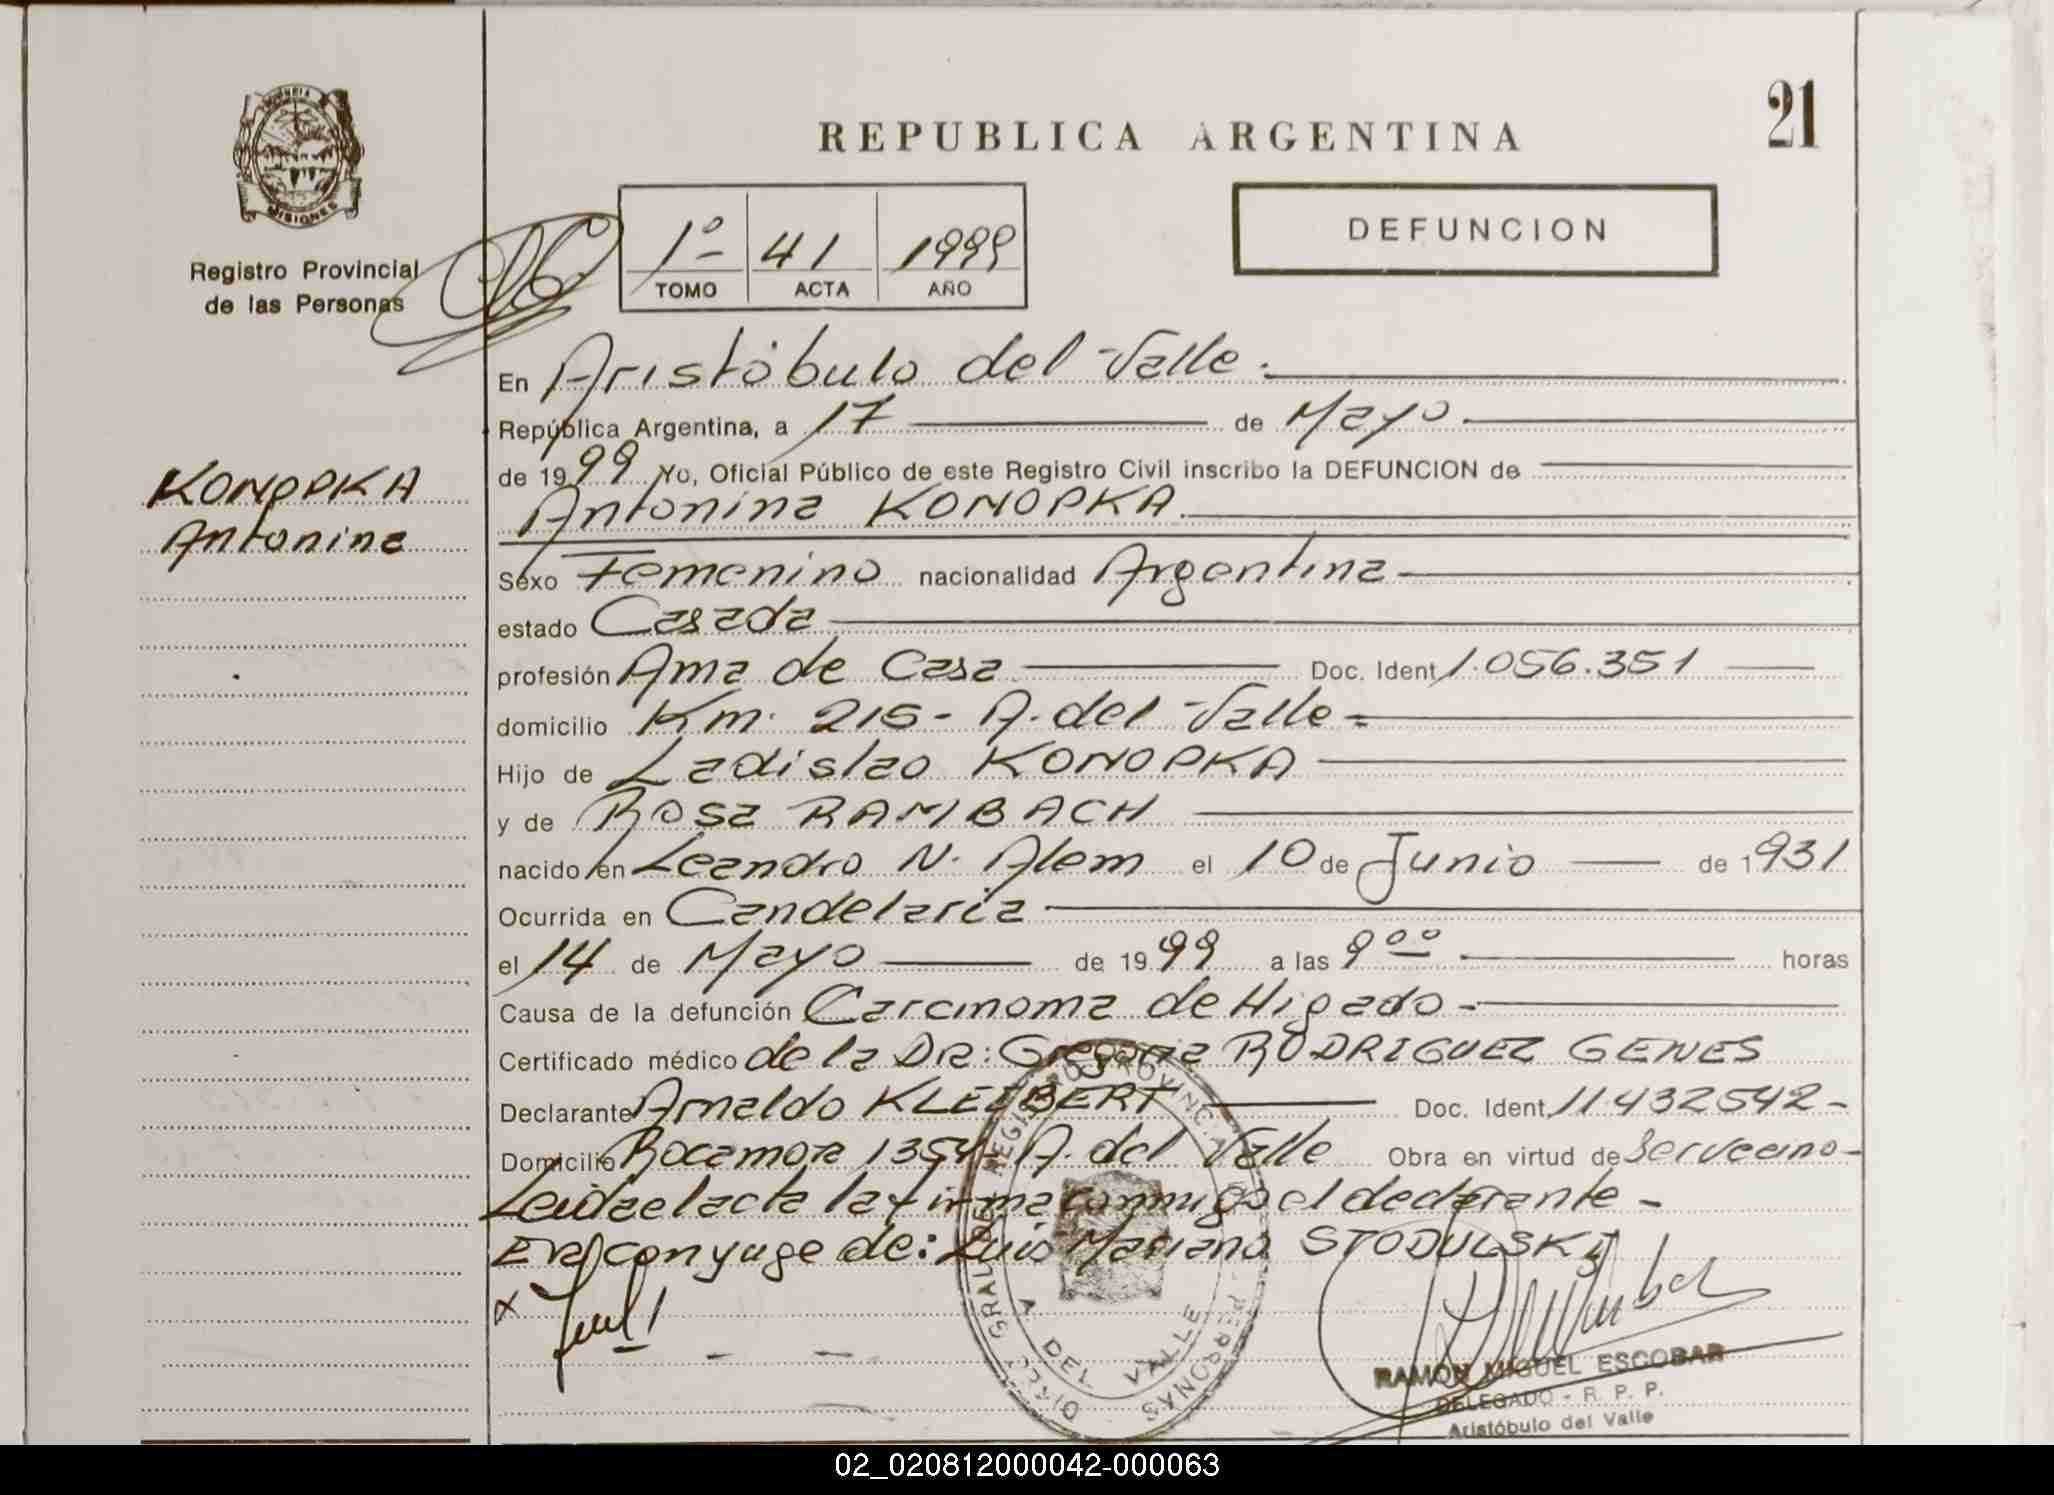 21
REPUBLICA ARGENTINA
PROVINCIA
MISIONES
Registro Provincial
de las Personas
1º 41 1999
TOMO ACTA AÑO
DEFUNCION
KONOPKA
Antonina
En Aristóbulo del Valle.
República Argentina, a 17 de Mayo
de 1999 Yo, Oficial Público de este Registro Civil inscribo la DEFUNCION de
Antonina KONOPKA.
Sexo Femenino nacionalidad Argentina
estado Casada
profesión Ama de Casa Doc. Ident. 1.056.351
domicilio Km. 215 - A. del Valle
Hijo de Ladislao KONOPKA
y de Rosa RAMBACH
nacido en Leandro N. Alem el 10 de Junio de 1931
Ocurrida en Candelaria
el 14 de Mayo de 1999 a las 9ºº horas
Causa de la defunción Carcinoma de Higado -
Certificado médico de la Dra: Gregoria RODRIGUEZ GENES
Declarante Arnaldo KLEIBERT Doc. Ident. 11432542 -
Domicilio Rocamora 1354 A. del Valle Obra en virtud de
Leida el acta la firma conmigo el declarante -
Era conyuge de: Luis Mariano STODULSKI
DIREC. GRAL. DEL REGISTRO PROVINCIAL DE PERSONAS
A. DEL VALLE
RAMON MIGUEL ESCOBAR
DELEGADO - R. P. P.
Aristóbulo del Valle
02_020812000042-000063